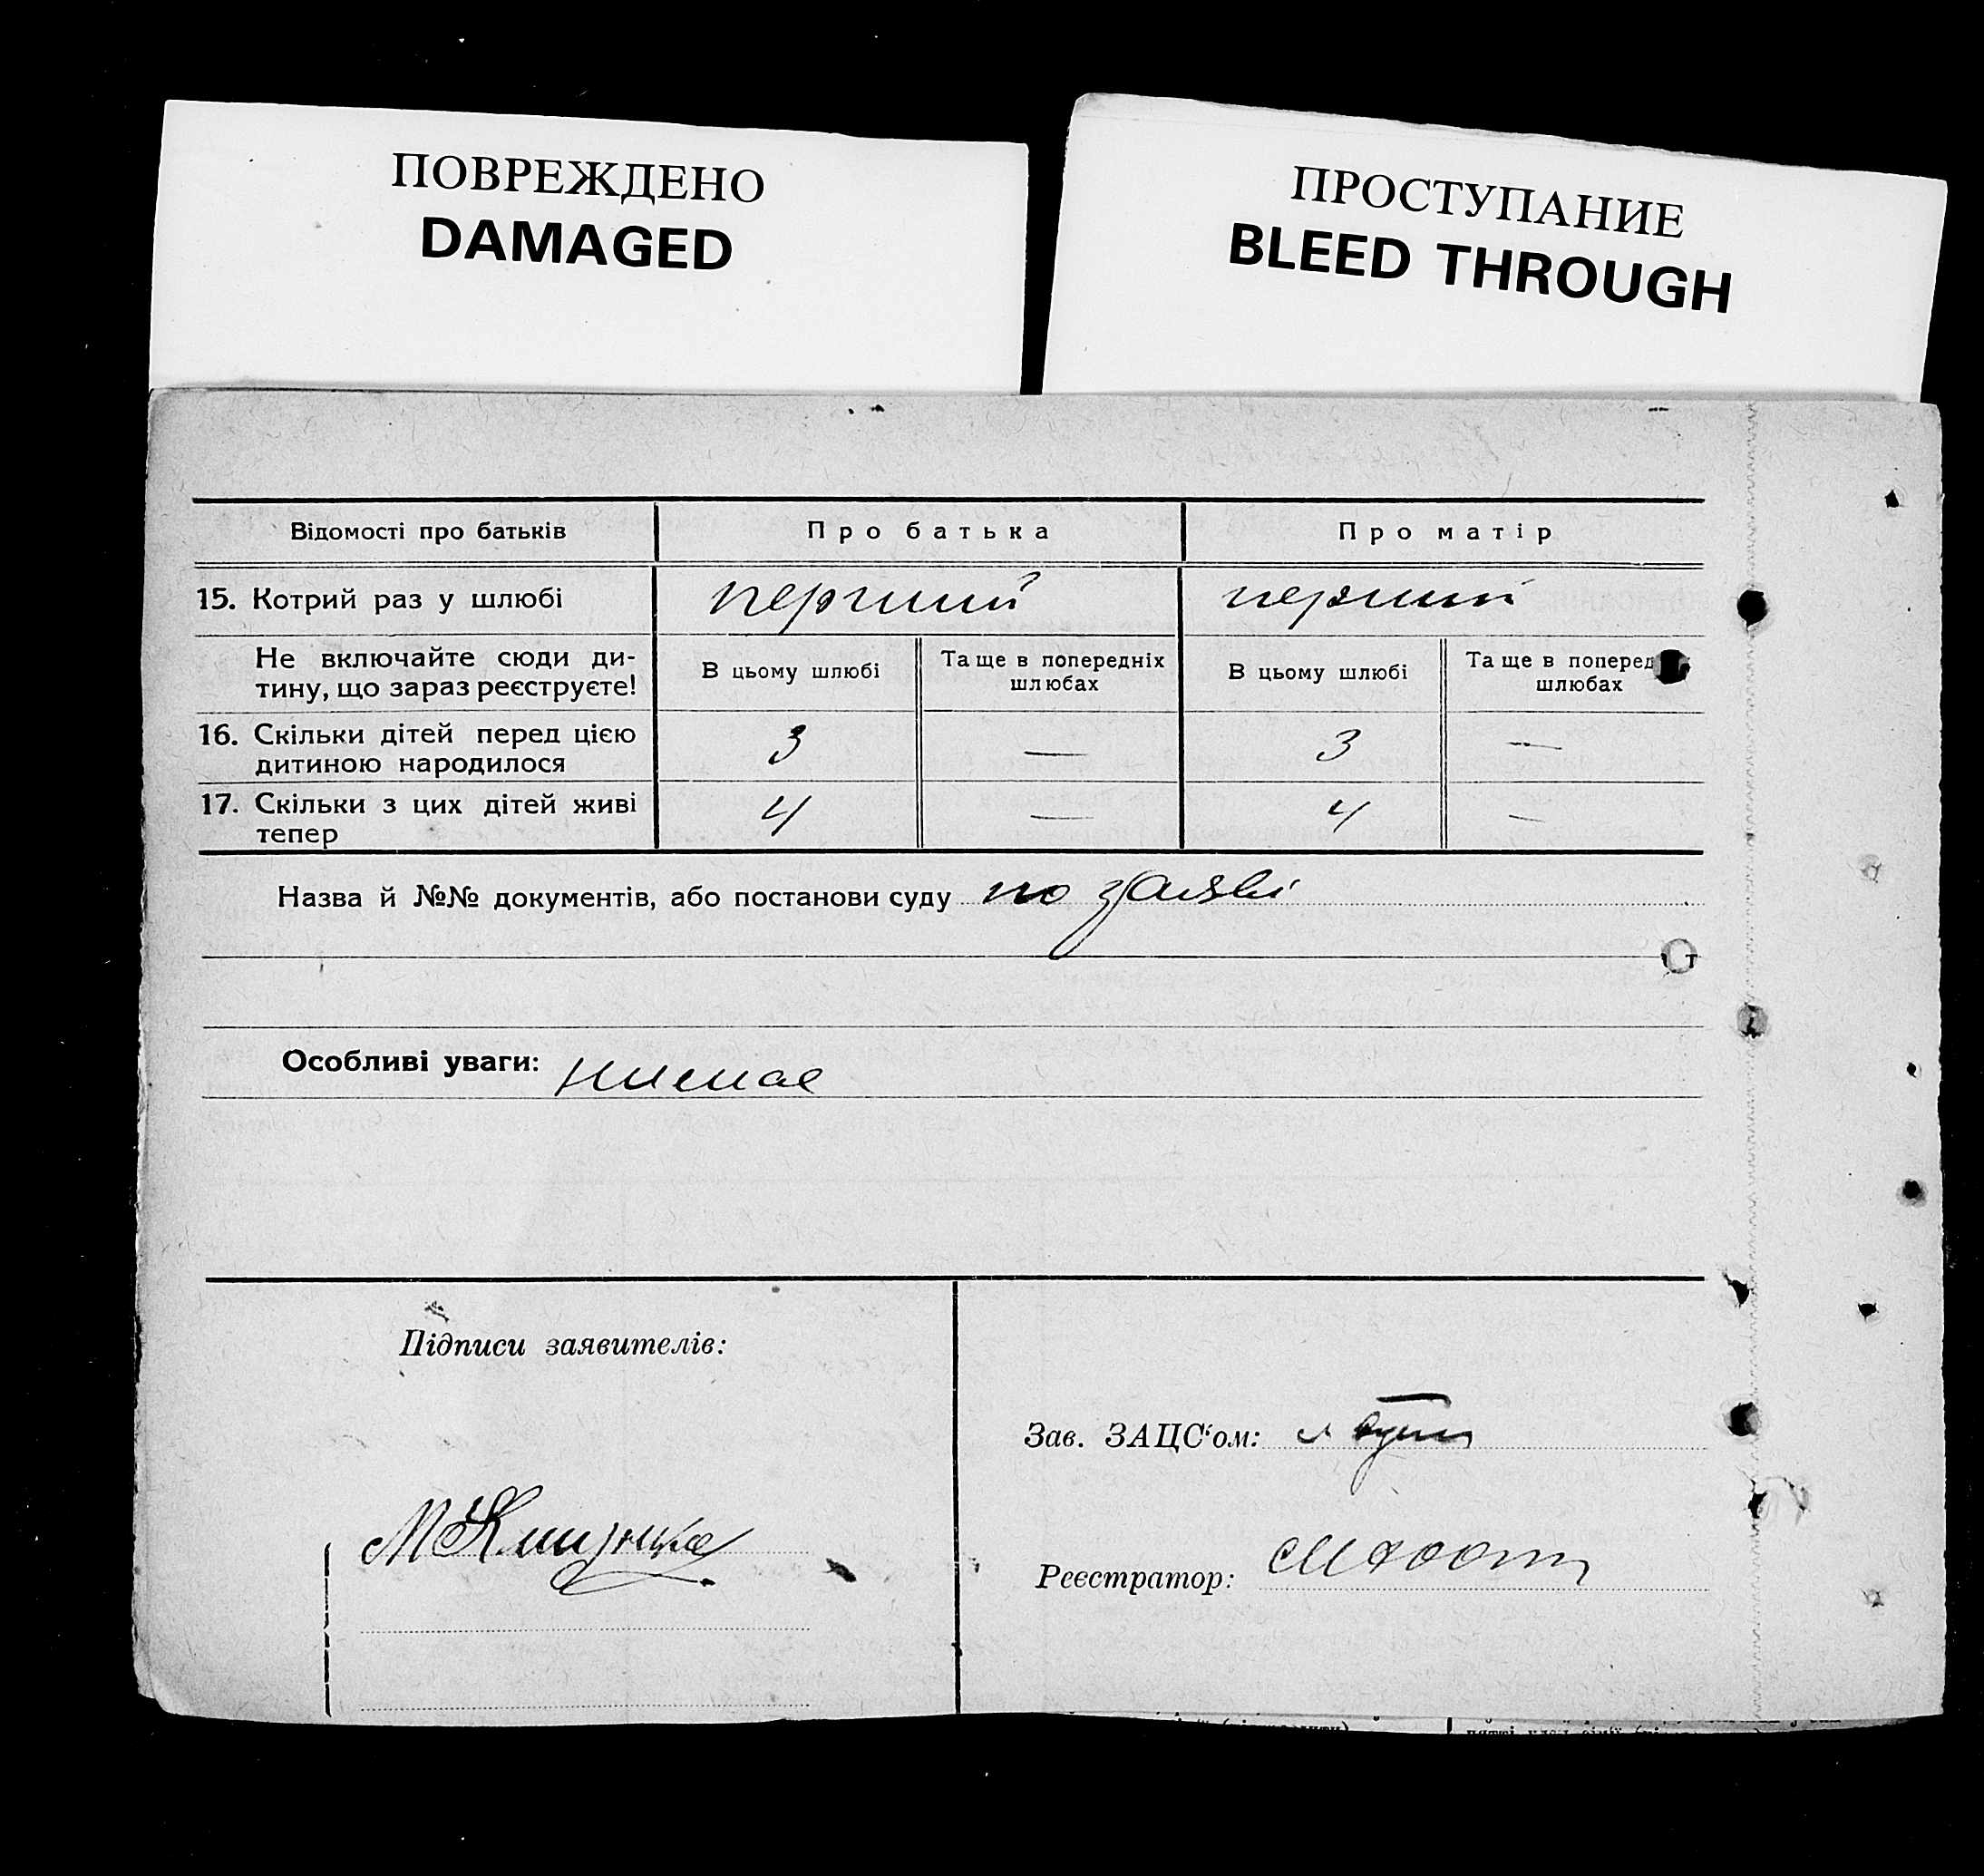 ПОВРЕЖДЕНО
DAMAGED
ПРОСТУПАНИЕ
BLEED THROUGH
Відомості про батьків Про батька Про матір
15. Котрий раз у шлюбі перший перший
Не включайте сюди ди-
тину, що зараз реєструєте! В цьому шлюбі Та ще в попередніх шлюбах В цьому шлюбі Та ще в поперед шлюбах
16. Скільки дітей перед цією
дитиною народилося 3 — 3 —
17. Скільки з цих дітей живі
тепер 4 — 4 —
Назва й №№ документів, або постанови суду по заяві
Особливі уваги: нимае
Підписи заявителів:
Зав. ЗАЦС‘ом:
Реєстратор: